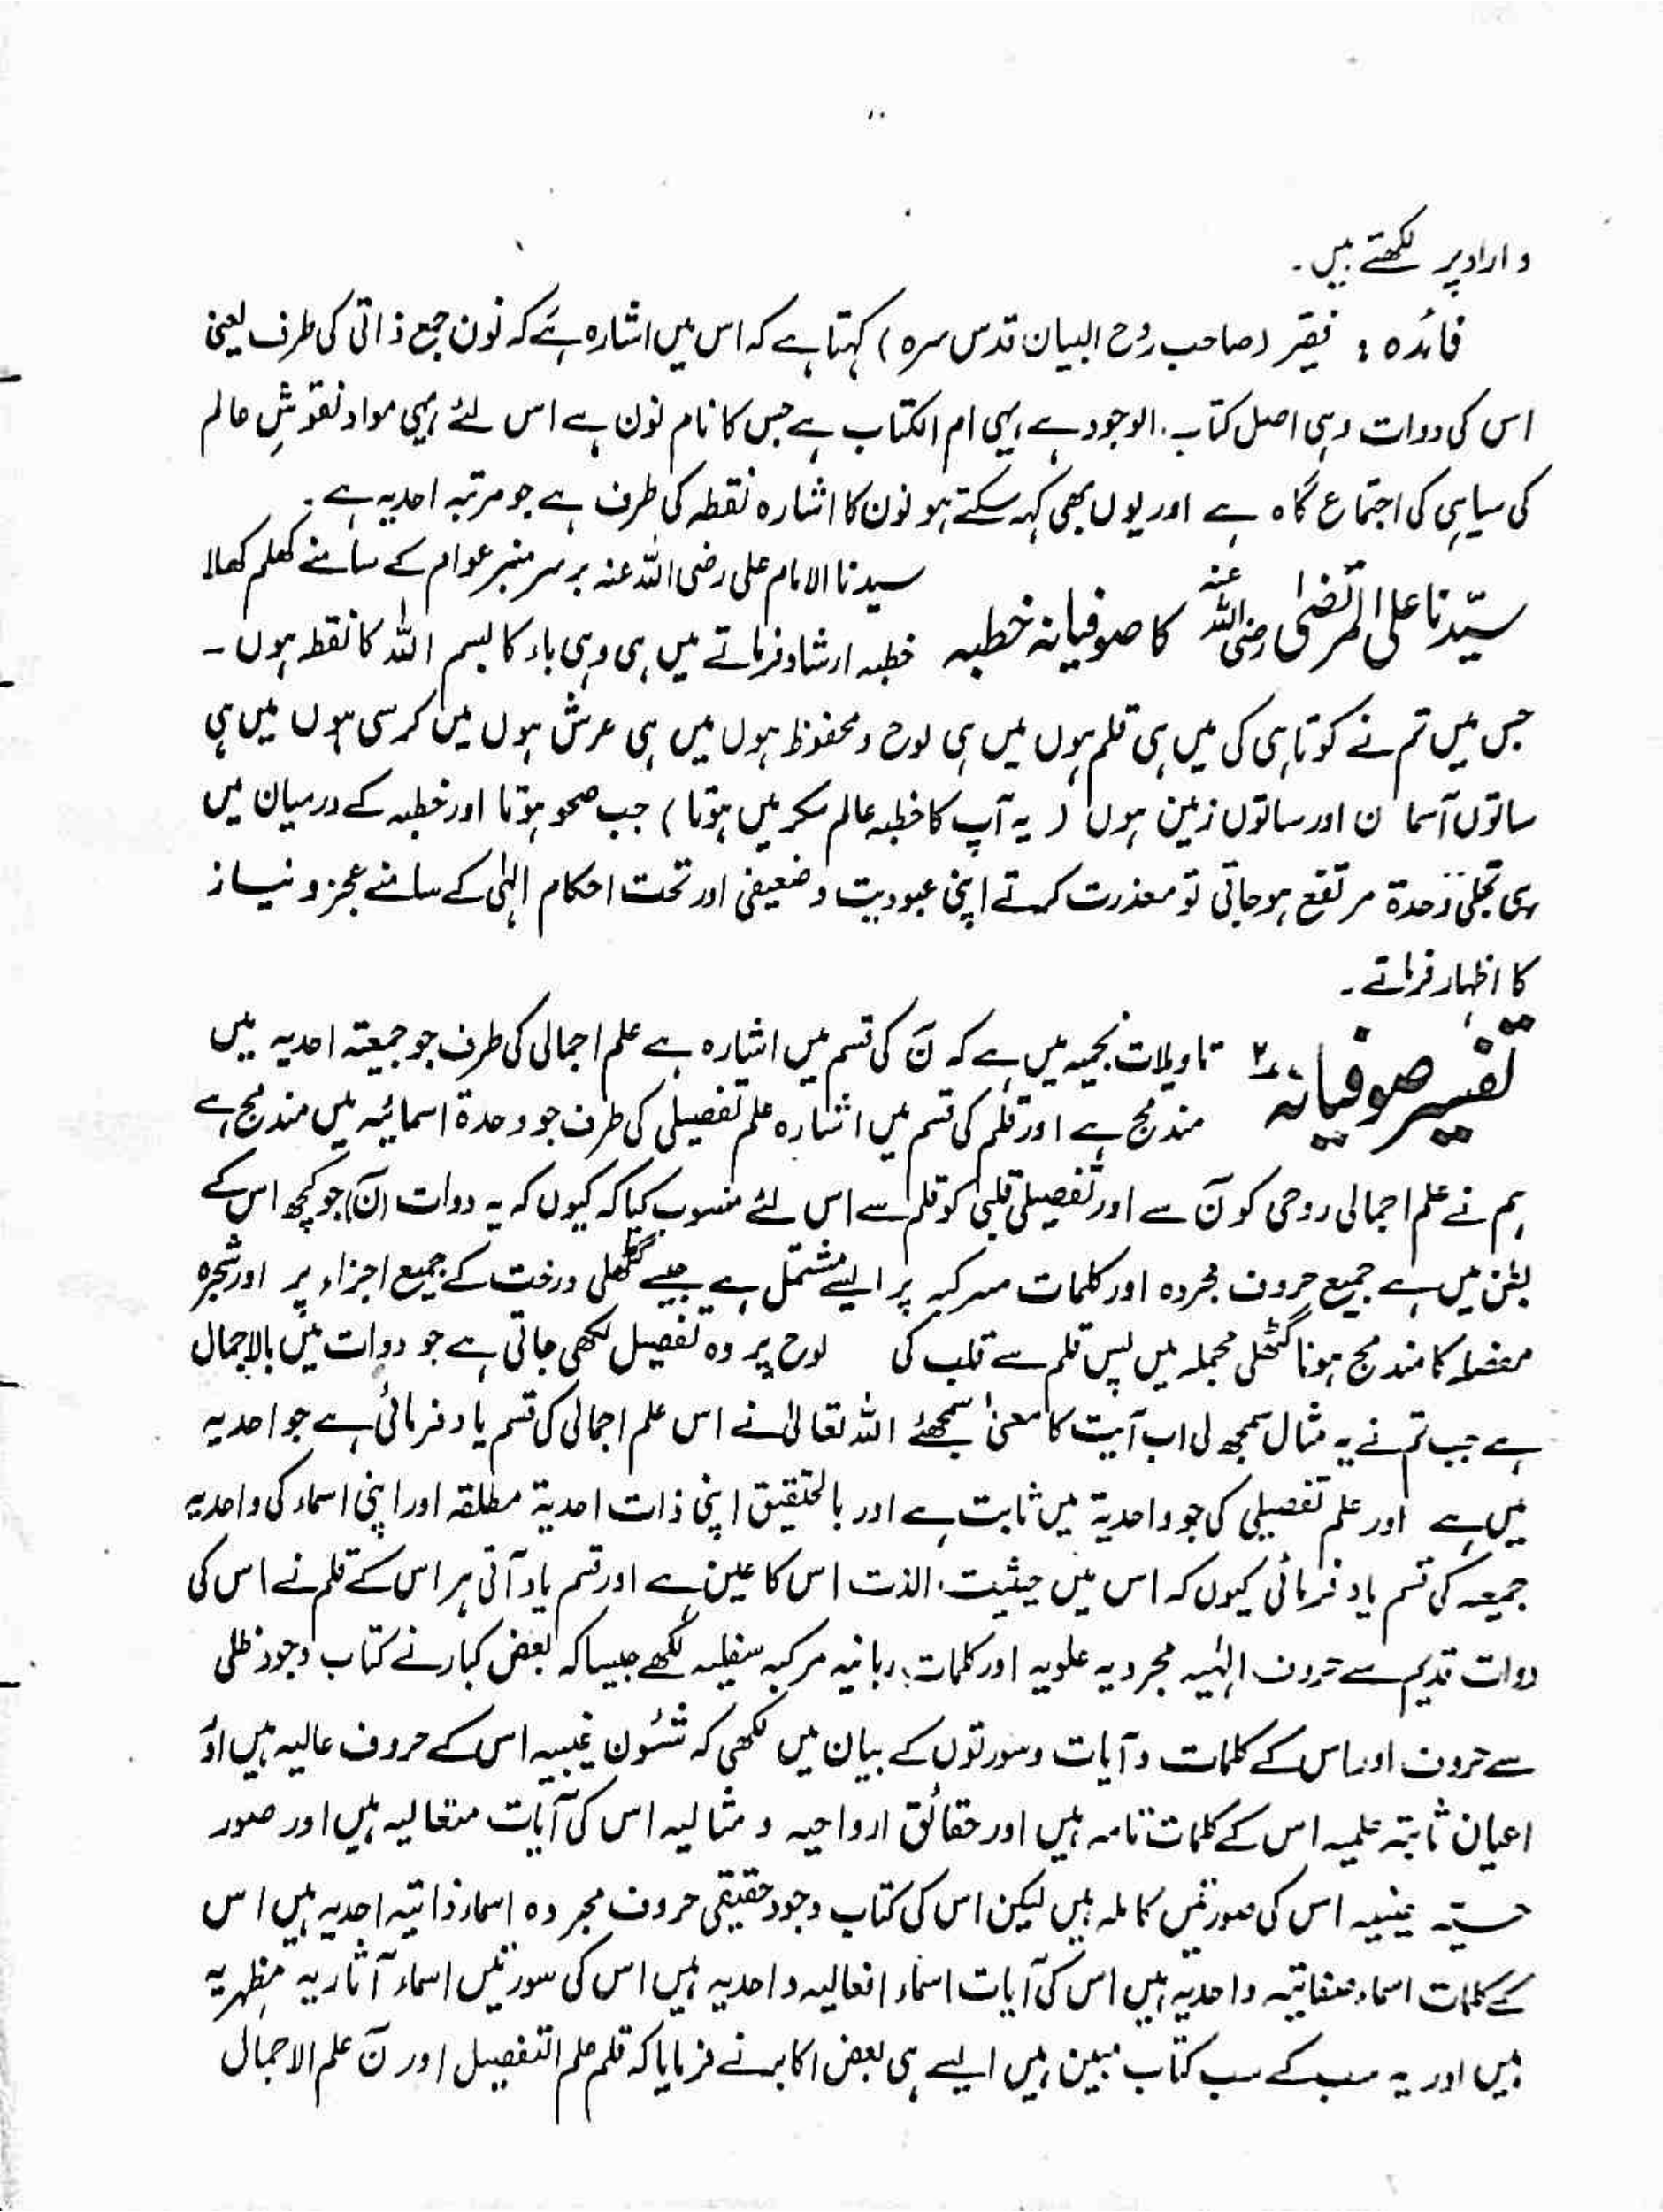 و اراد پر لکھتے ہیں۔
فائدہ : فقیر (صاحب روح البیان قدس سرہ) کہتا ہے کہ اس میں اشارہ ہے کہ نون جمع ذاتی کی طرف یعنی
اس کی دوات وہی اصل کتاب الوجود ہے یہی ام الکتاب ہے جس کا نام نون ہے اس لئے یہی مواد نقوشِ عالم
کی سیاہی کی اجتماع گاہ ہے اور یوں بھی کہہ سکتے ہو نون کا اشارہ نقطہ کی طرف ہے جو مرتبہ احدیہ ہے۔
سیّدنا علی المرتضیٰ رضی اللہ عنہ کا صوفیانہ خطبہ
سیدنا الامام علی رضی اللہ عنہ برسر منبر عوام کے سامنے کھلم کھلا
خطبہ ارشاد فرماتے میں ہی وہی باء کا بسم اللہ کا نقطہ ہوں۔
جس میں تم نے کوتاہی کی میں ہی قلم ہوں میں ہی لوح و محفوظ ہوں میں ہی عرش ہوں میں کرسی ہوں میں ہی
ساتوں آسمان اور ساتوں زمین ہوں (یہ آپ کا خطبہ عالم سکر میں ہوتا) جب صحو ہوتا اور خطبہ کے درمیان میں
ہی تجلی وحدۃ مرتفع ہو جاتی تو معذرت کرتے اپنی عبودیت و ضعیفی اور تحت احکام الہٰی کے سامنے عجز و نیاز
کا اظہار فرماتے۔
تفسیر صوفیانہ ۲
تاویلات نجمیہ میں ہے کہ نٓ کی قسم میں اشارہ ہے علم اجمالی کی طرف جو جمیعۃ احدیہ میں
مندمج ہے اور قلم کی قسم میں اشارہ علم تفصیلی کی طرف جو وحدۃ اسمائیہ میں مندمج ہے
ہم نے علم اجمالی روحی کو نٓ سے اور تفصیلی قلبی کو قلم سے اس لئے منسوب کیا کہ کیوں کہ یہ دوات (نٓ) جو کچھ اس کے
بطن میں ہے جمیع حروف مجردہ اور کلمات مرکبہ پر ایسے مشتمل ہے جیسے گٹھلی درخت کے جمیع اجزاء پر اور شجرہ
مفصلہ کا مندمج ہونا گٹھلی مجملہ میں پس قلم سے قلب کی لوح پر وہ تفصیل لکھی جاتی ہے جو دوات میں بالاجمال
ہے جب تم نے یہ مثال سمجھ لی اب آیت کا معنیٰ سمجھئے اللہ تعالیٰ نے اس علم اجمالی کی قسم یاد فرمائی ہے جو احدیہ
میں ہے اور علم تفصیلی کی جو واحدیۃ میں ثابت ہے اور بالتحقیق اپنی ذات احدیۃ مطلقہ اور اپنی اسماء کی واحدیہ
جمیعہ کی قسم یاد فرمائی کیوں کہ اس میں حیثیت الذت اس کا عین ہے اور قسم یاد آتی ہر اس کے قلم نے اس کی
دوات قدیم سے حروف الہٰیہ مجردیہ علویہ اور کلمات ربانیہ مرکبہ سفلیہ لکھے جیسا کہ بعض کبار نے کتاب وجود ظلی
سے حروف اور اس کے کلمات و آیات و سورتوں کے بیان میں لکھی کہ شئون غیبیہ اس کے حروف عالیہ ہیں اور
اعیان ثابتہ علمیہ اس کے کلمات تامہ ہیں اور حقائق ارواحیہ و مثالیہ اس کی آیات متعالیہ ہیں اور صور
حسیّہ عینیہ اس کی صورتیں کاملہ ہیں لیکن اس کی کتاب وجود حقیقی حروف مجردہ اسماء ذاتیہ احدیہ ہیں اس
کے کلمات اسماء صفاتیہ واحدیہ ہیں اس کی آیات اسماء افعالیہ واحدیہ ہیں اس کی سورتیں اسماء آثاریہ مظہریہ
ہیں اور یہ سب کے سب کتاب مبین ہیں ایسے ہی بعض اکابر نے فرمایا کہ قلم علم التفصیل اور نٓ علم الاجمال